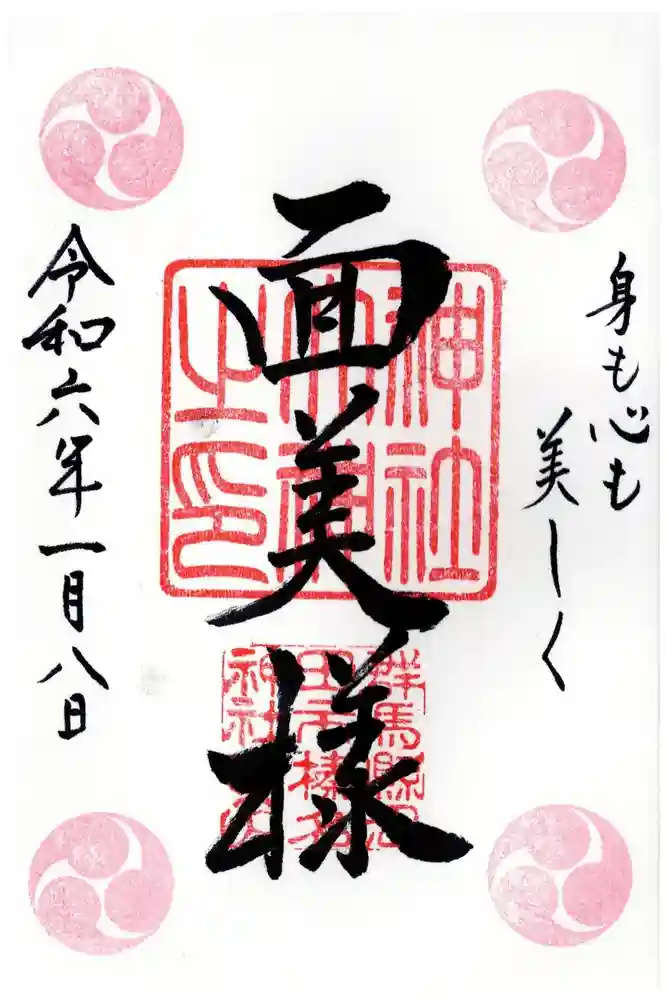 身も心も
美しく
面美様
令和六年一月八日
神社
之印
群馬縣沼
田市榛名
神社